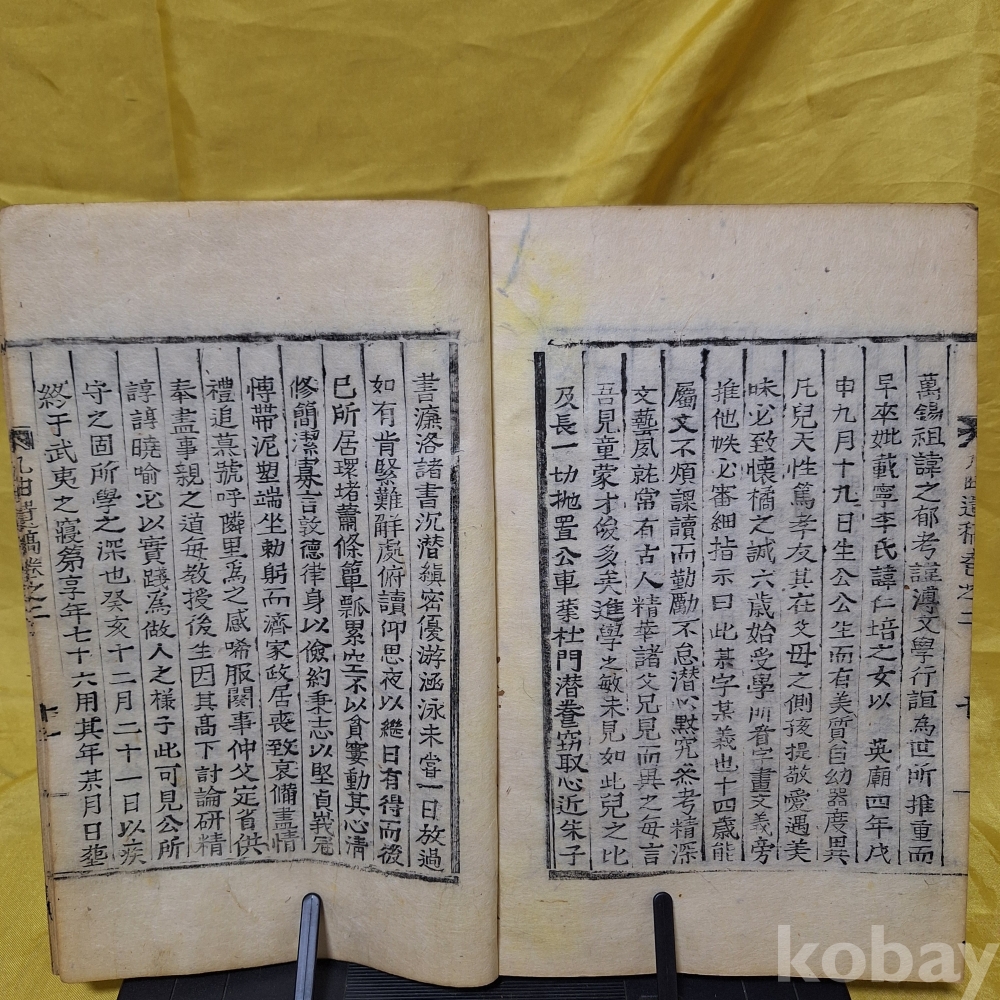 萬錫祖諱之郁考諱溥文學行誼為世所推重而
早卒妣載寧李氏諱仁培之女以 英廟四年戊
申九月十九日生公公生而有美質自幼器度異
凡兒天性篤孝友其在父母之側孩提敬愛遇美
味必致懷橘之誠六歲始受學所看字畫文義旁
推他帙必審細指示曰此某字某義也十四歲能
屬文不煩課讀而勤勵不怠潜心默究參考精深
文藝夙就常有古人精華諸父兄見而異之每言
吾見童蒙才俊多矣進學之敏未見如此兒之比
及長一切抛置公車業杜門潜養窃取心近朱子
遺稿卷之二
書濂洛諸書沉潜縝密優游涵泳未嘗一日放過
如有肯綮難解處俯讀仰思夜以繼日有得而後
已所居環堵蕭條簞瓢累空不以貧窶動其心淸
修簡潔寡言敦德律身以儉約秉志以堅貞峩冠
愽帶泥塑端坐勅躬而濟家政居喪致哀備盡情
禮追慕號呼隣里爲之感唏服闋事仲父定省供
奉盡事親之道每教授後生因其髙下討論研精
諄諄曉喻必以實踐爲做人之樣子此可見公所
守之固所學之深也癸亥十二月二十一日以疾
終于武夷之寢第享年七十六用其年某月日塟
遺稿卷之二
十一
kobay